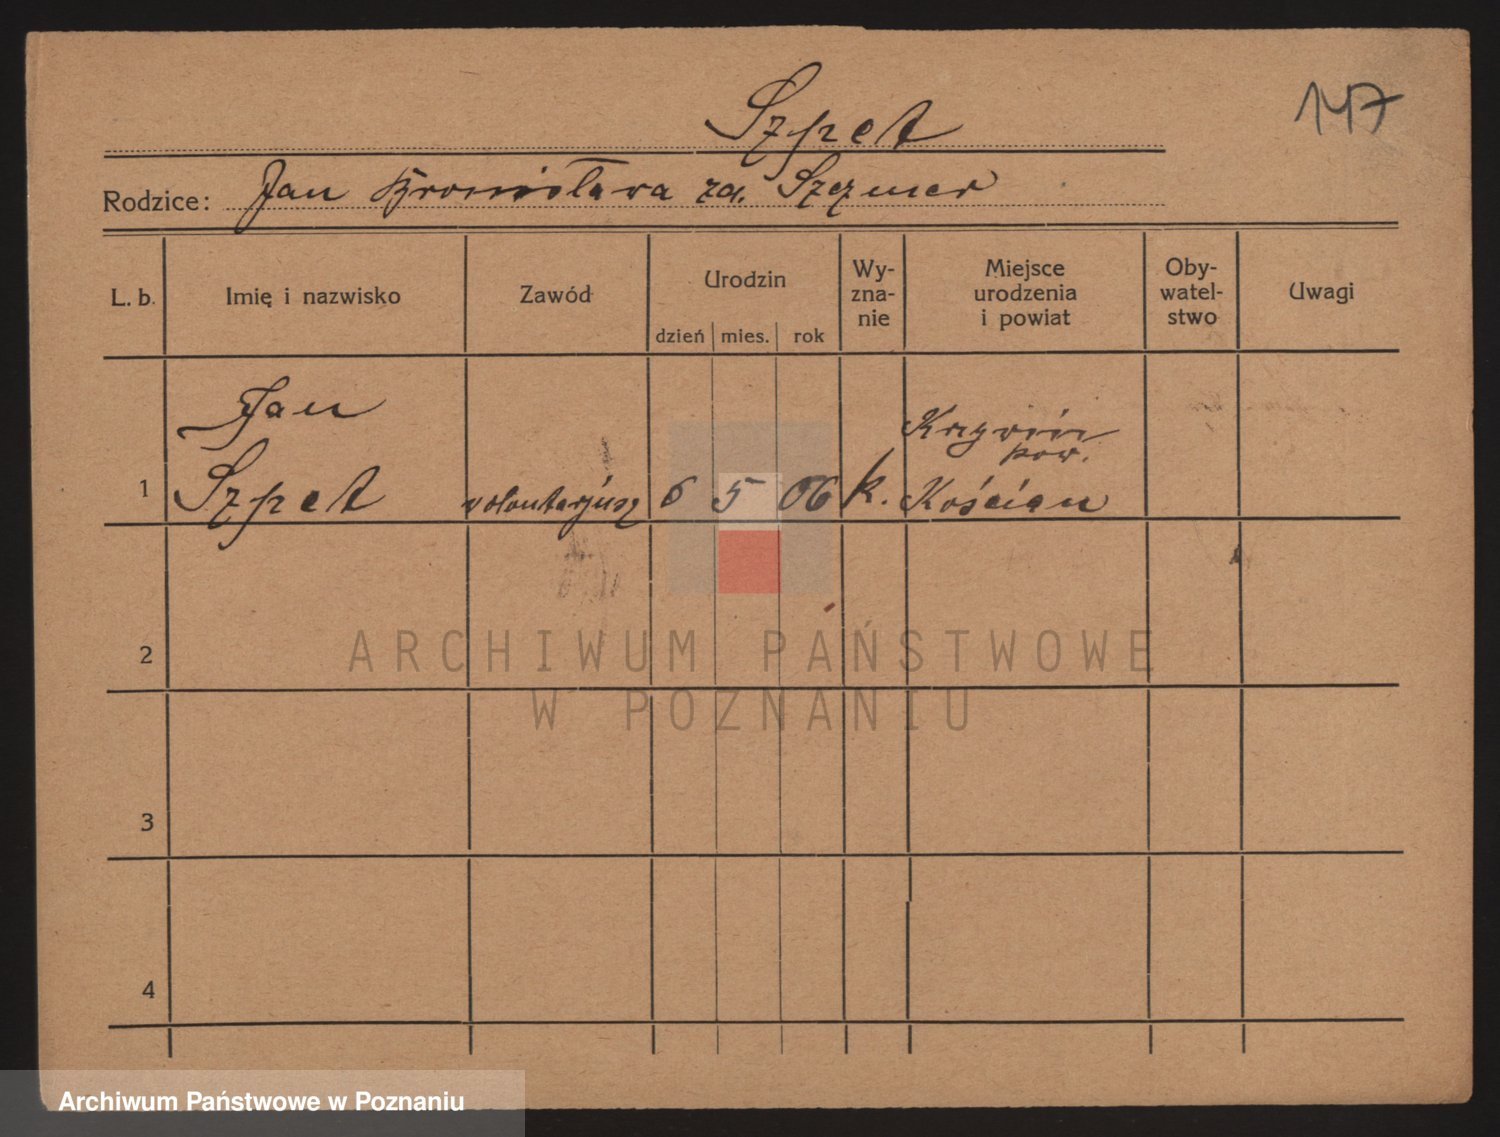 147
Szpet
Rodzice: Jan Bronisława zd. Szczmer
L. b. Imię i nazwisko Zawód Urodzin dzień mies. rok Wy- zna- nie Miejsce urodzenia i powiat Oby- watel- stwo Uwagi
Jan
Krzywiń
pow.
1 Szpet volontarjusz 6 5 06 k. Kościan
2
ARCHIWUM PAŃSTWOWE
W POZNANIU
3
4
Archiwum Państwowe w Poznaniu